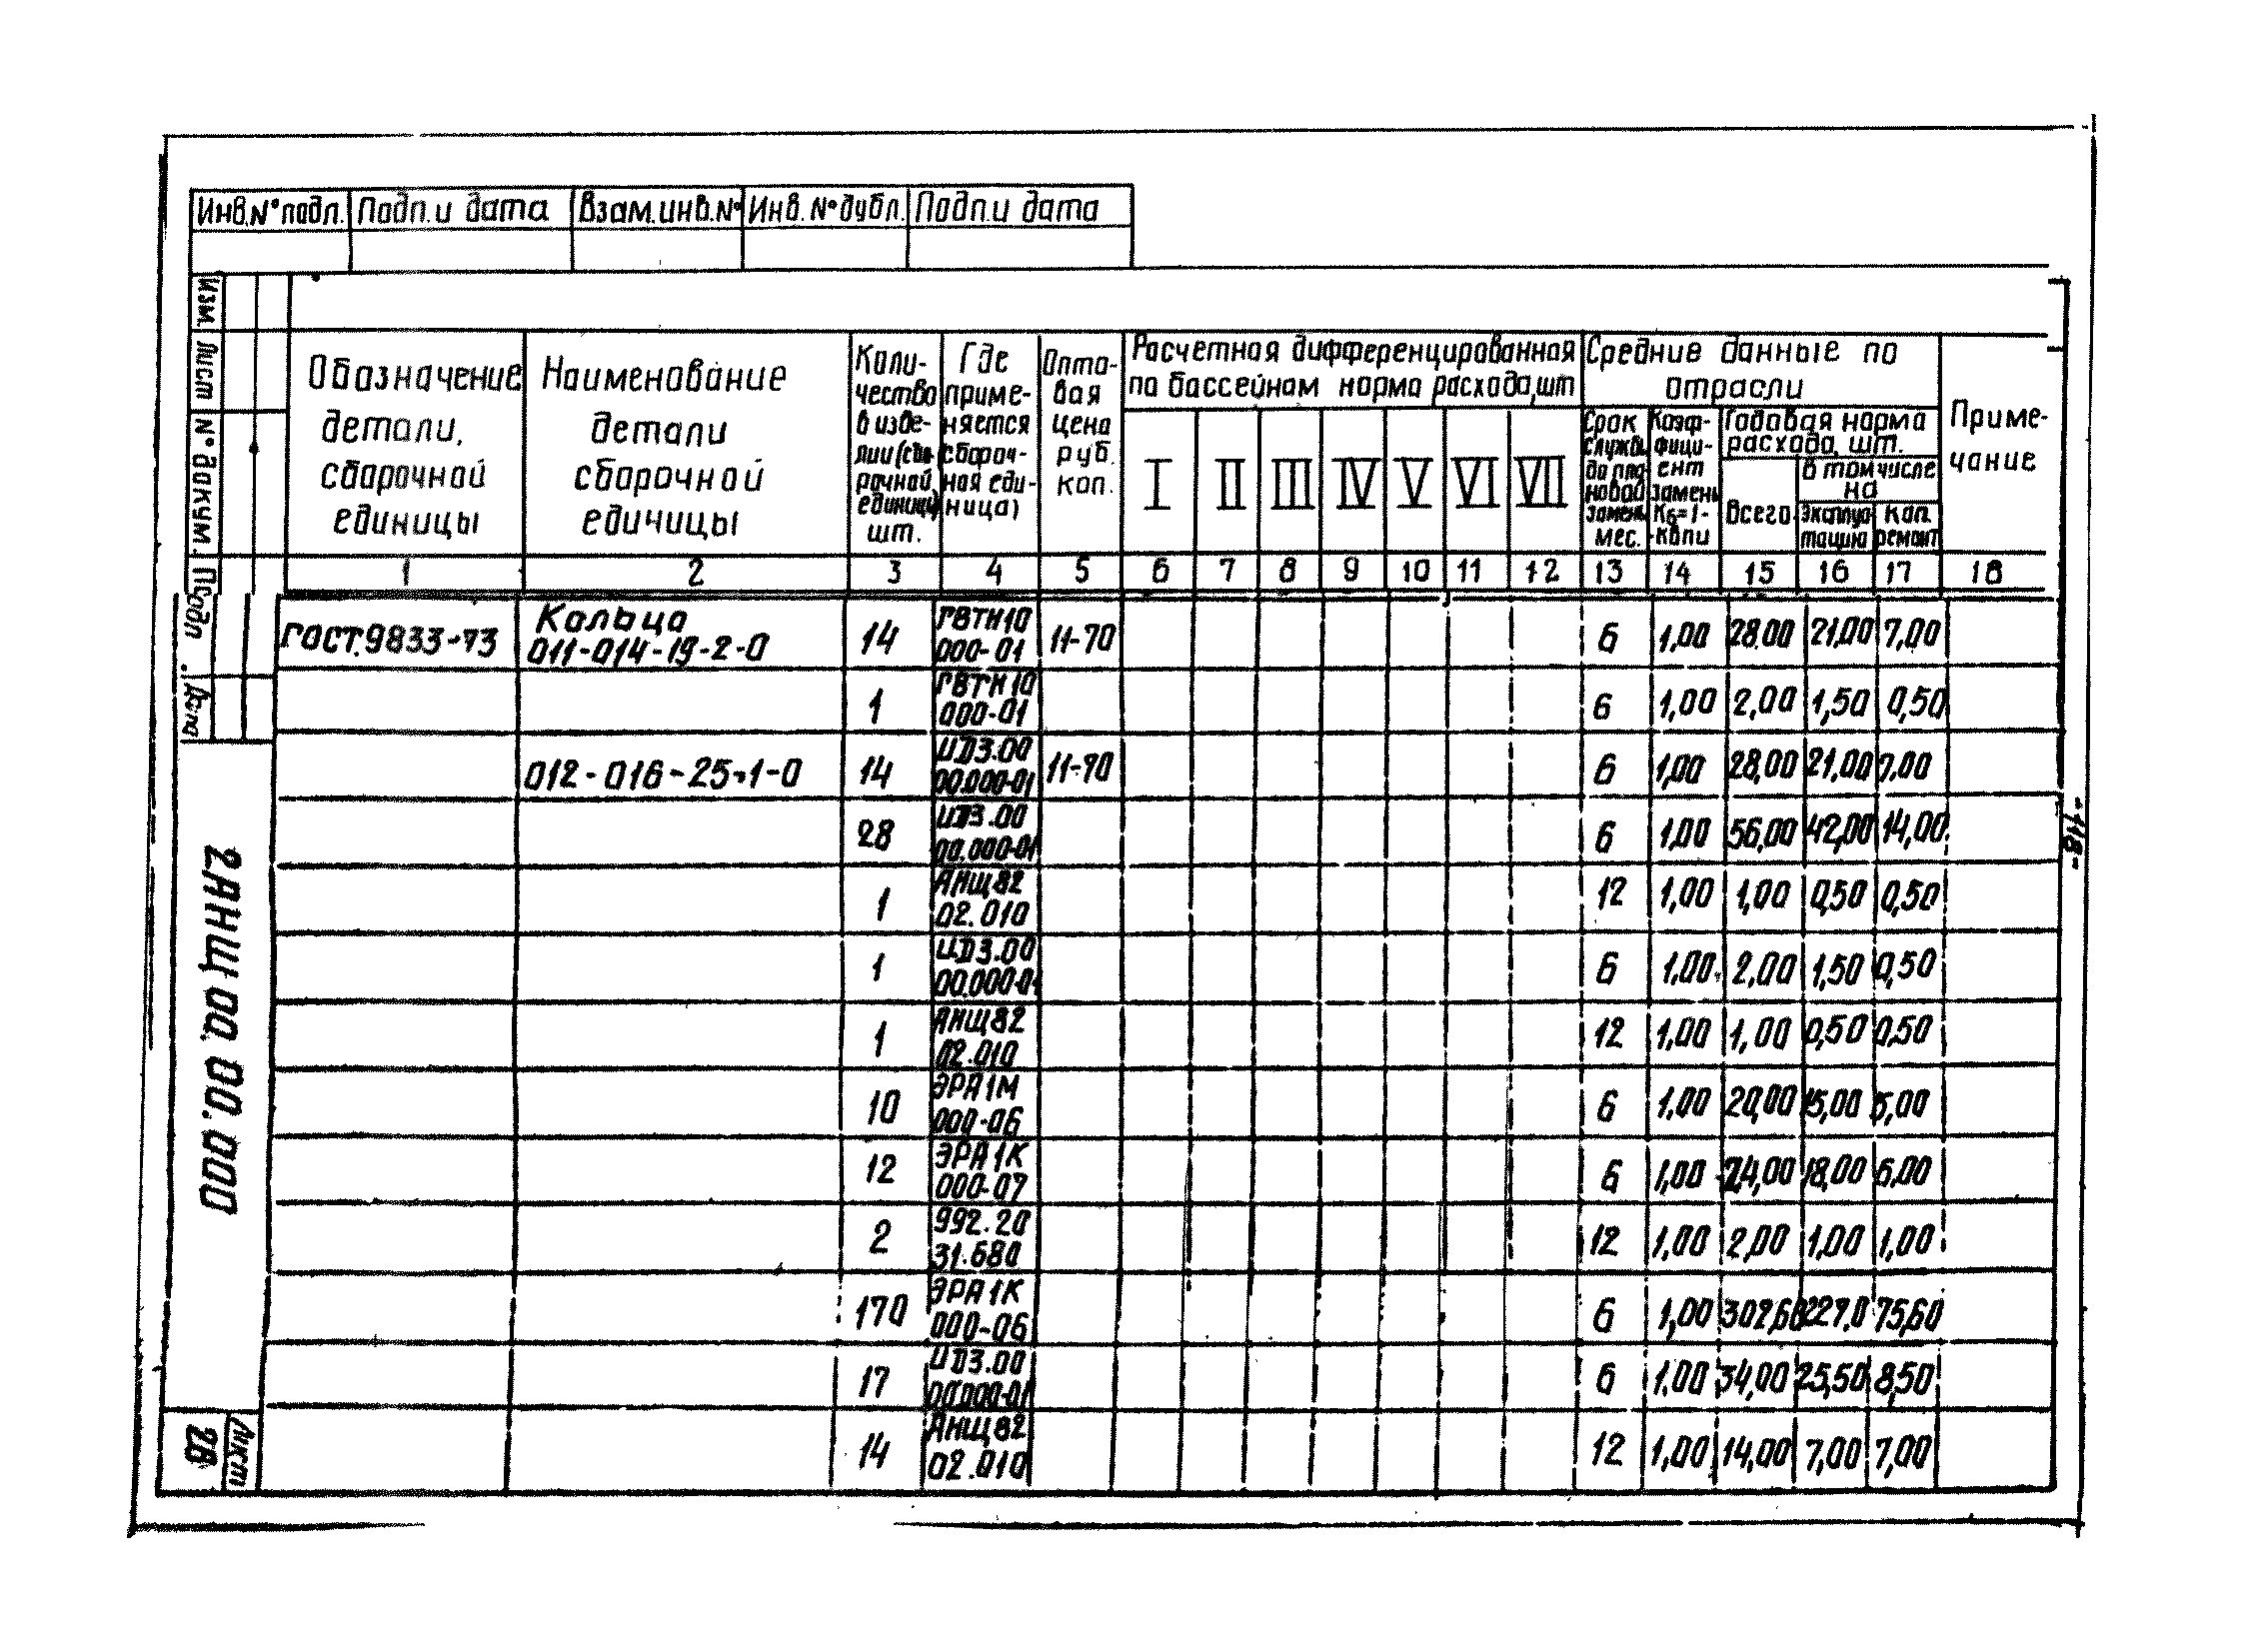 Инв.N° подл. Подп. и дата Взам. инв. N° Инв. N° дубл. Подп. и дата
Изм. Лист N° докум. Подп. Дата
Обозначение детали, сборочной единицы
Наименование детали сборочной единицы
Количество в изделии (сборочной единице) шт.
Где применяется сборочная единица)
Оптовая цена руб. коп.
Расчетная дифференцированная по бассейнам норма расхода, шт
I II III IV V VI VII
Средние данные по отрасли
Срок службы до плановой замены мес.
Коэффициент замены Кб=1-капи
Годовая норма расхода, шт.
Всего
в том числе на
Эксплуатацию
кап. ремонт
Примечание
1 2 3 4 5 6 7 8 9 10 11 12 13 14 15 16 17 18
ГОСТ.9833-73 Кольца 011-014-19-2-0 14 ГВТН10 000-01 11-70 6 1,00 28.00 21,00 7,00
1 ГВТН10 000-01 6 1,00 2,00 1,50 0,50
012-016-25-1-0 14 ЦД3.00 00.000-01 11-90 6 1,00 28,00 21,00 7,00
28 ЦД3.00 00.000-01 6 1,00 56,00 42,00 14,00
1 АНЩ82 02.010 12 1,00 1,00 0,50 0,50
1 ЦД3.00 00.000-0 6 1,00 2,00 1,50 0,50
1 АНЩ82 02.010 12 1,00 1,00 0,50 0,50
10 ЭРА1М 000-06 6 1,00 20,00 15,00 5,00
12 ЭРА1К 000-07 6 1,00 24,00 18,00 6,00
2 992.20 31.680 12 1,00 2,00 1,00 1,00
170 ЭРА1К 000-06 6 1,00 302,60 227.0 75,60
17 ЦД3.00 00.000-01 6 1.00 34,00 25,50 8,50
14 АНЩ82 02.010 12 1,00 14,00 7,00 7,00
2АНЩ 00.00.000
Лист
28
-118-